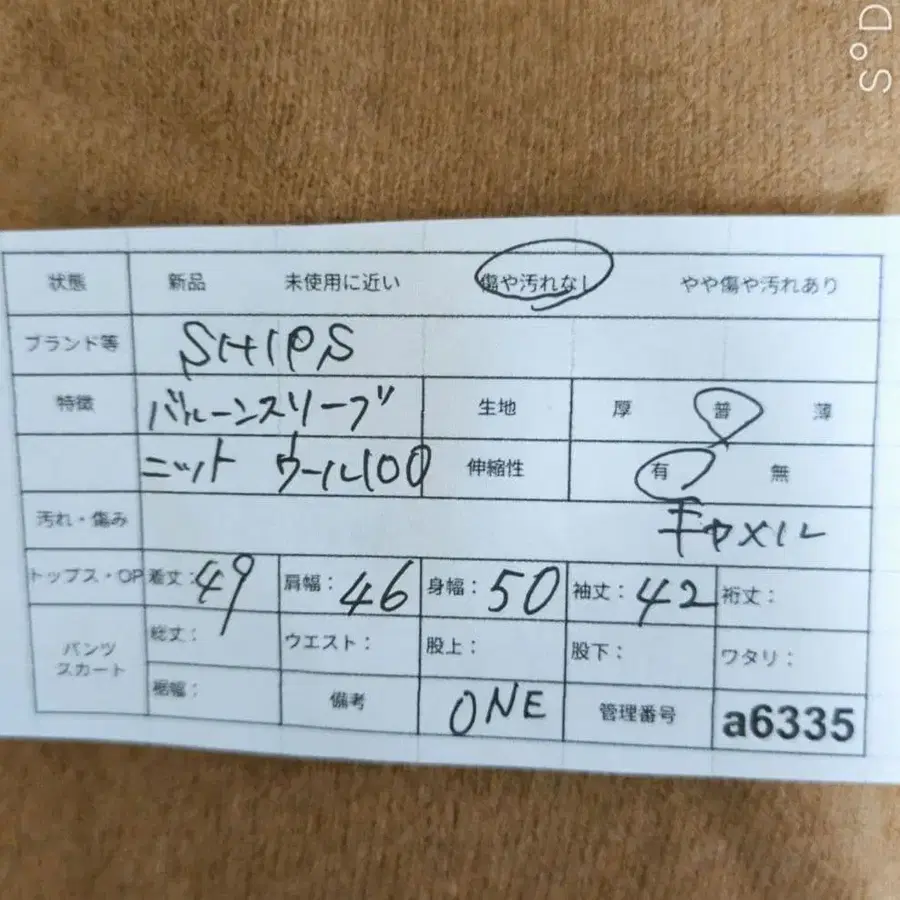 S°D
状態 新品 未使用に近い 傷や汚れなし やや傷や汚れあり
ブランド等 SHIPS
特徴 バルーンスリーブ 生地 厚 普 薄
ニット ウール100 伸縮性 有 無
汚れ・傷み キャメル
トップス・OP 着丈:49 肩幅:46 身幅:50 袖丈:42 裄丈:
パンツ スカート 総丈: ウエスト: 股上: 股下: ワタリ:
裾幅: 備考 ONE 管理番号 a6335